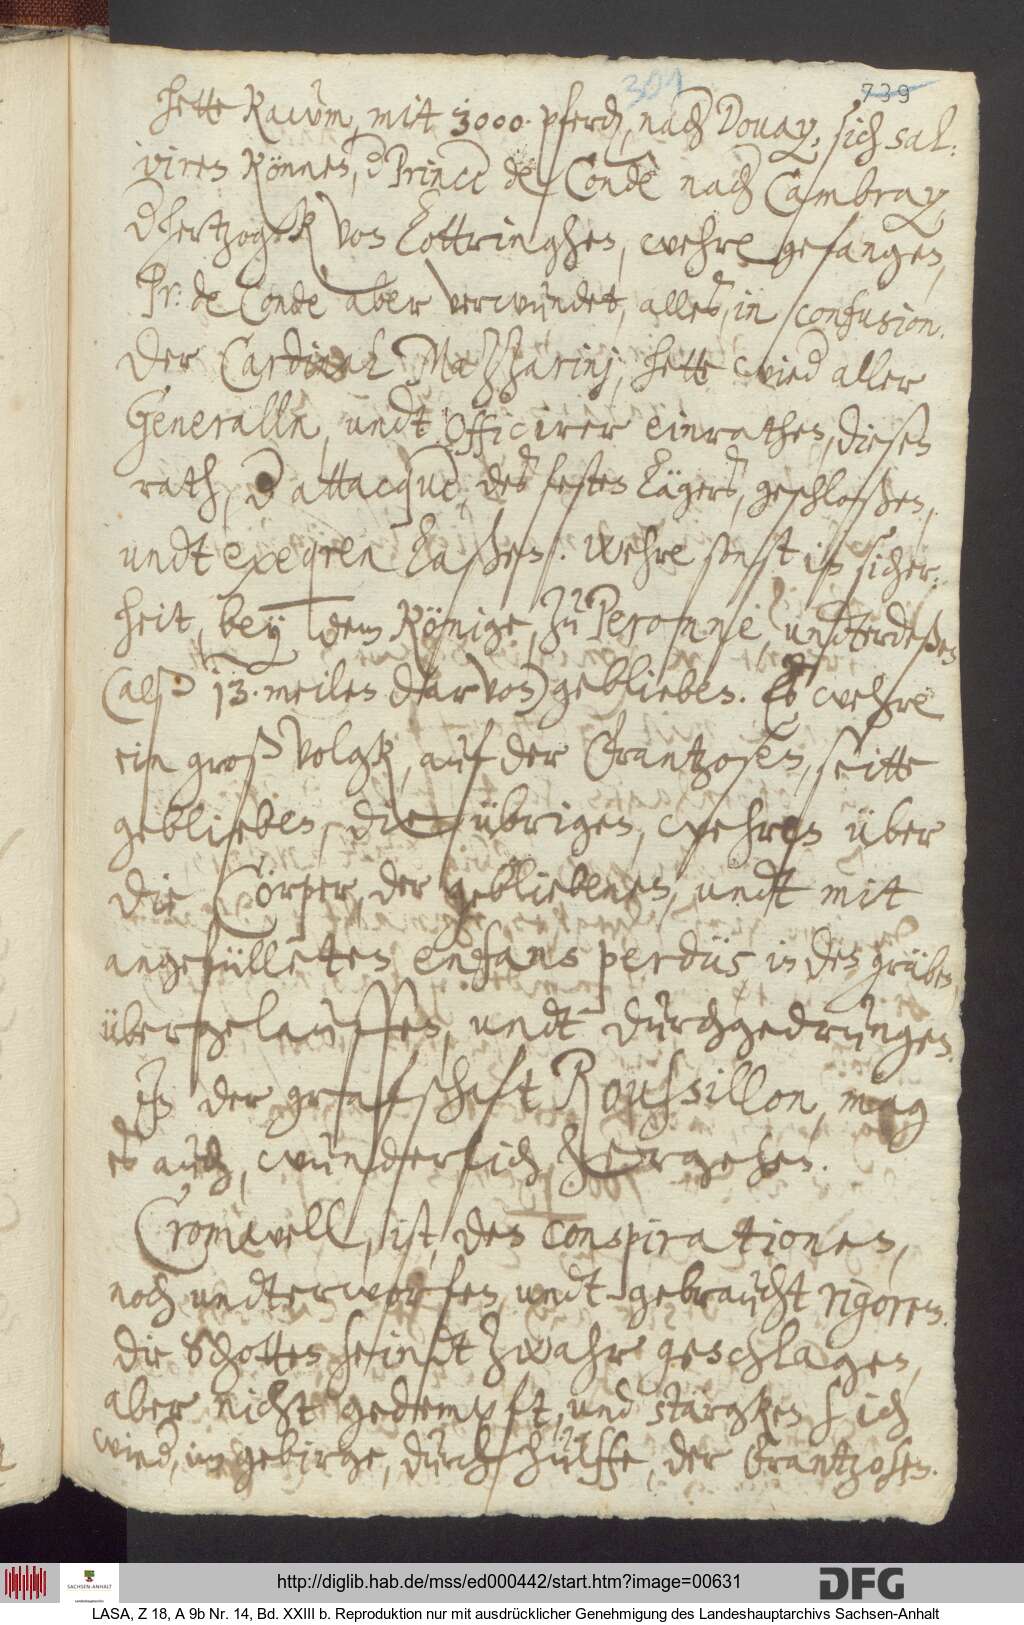 301 739
hette Raum, mit 3000. pferd, nach Douay, sich sal,,
viren können, d Prince de Condè nach Cambray,
d hertzogk von Lottringhen, wehre gefangen,
Pr: de Conde aber verwundet, alles, in confusion.
Der Cardinal Mazzarinj, hette wied aller
Generalln, undt Officirer einrathen, diesen
rath, d attacque, des festen Lägers, geschloßen,
undt exeq̃ren laßen. Wehre sonst in sicher,,
heit, bey dem Könige, zu Peronne, undterdeßen
(als 13. meilen darvon) geblieben. Es wehre
ein groß volgk, auf der Frantzosen, seitte
geblieben, die übrigen, wehren über
die Cörper, der gebliebenen, undt mit
angefülleten enfans perdüs in den gräben,
übergelauffen, undt durchgedrungen.
In der grafschaft Roussillon, mag
es auch, wunderlich hergehen.
Cromwell, ist, den conspirationen,
noch undterworfen, undt gebraucht rigorem.
Die Schotten seindt zwahr geschlagen,
aber nicht gedempft, und stärgken sich
wied, im gebirge, durch hülffe, der Frantzosen.
http://diglib.hab.de/mss/ed000442/start.htm?image=00631
SACHSEN-ANHALT
DFG
LASA, Z 18, A 9b Nr. 14, Bd. XXIII b. Reproduktion nur mit ausdrücklicher Genehmigung des Landeshauptarchivs Sachsen-Anhalt